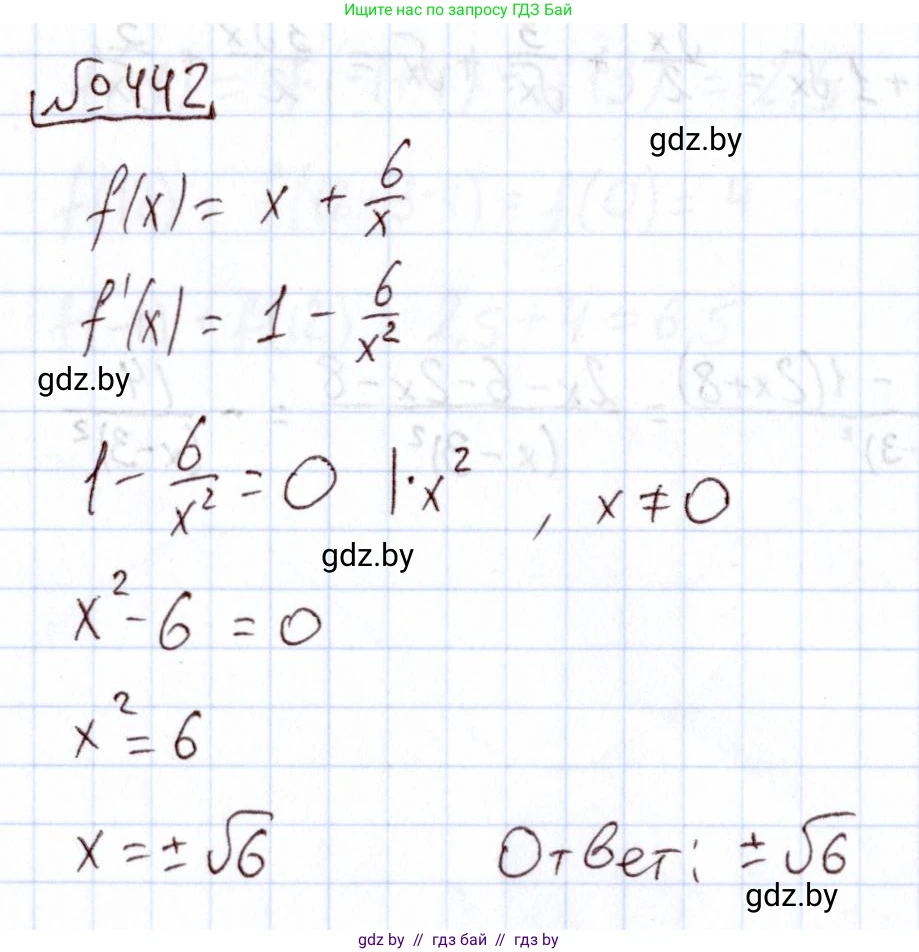 Ищите нас по запросу ГДЗ Бай
№442
gdz.by
f(x) = x + 6/x
f'(x) = 1 - 6/x²
gdz.by
1 - 6/x² = 0 |·x² , x ≠ 0
gdz.by
x² - 6 = 0
x² = 6
x = ± √6 Ответ: ± √6
gdz.by
gdz.by // гдз бай // гдз by